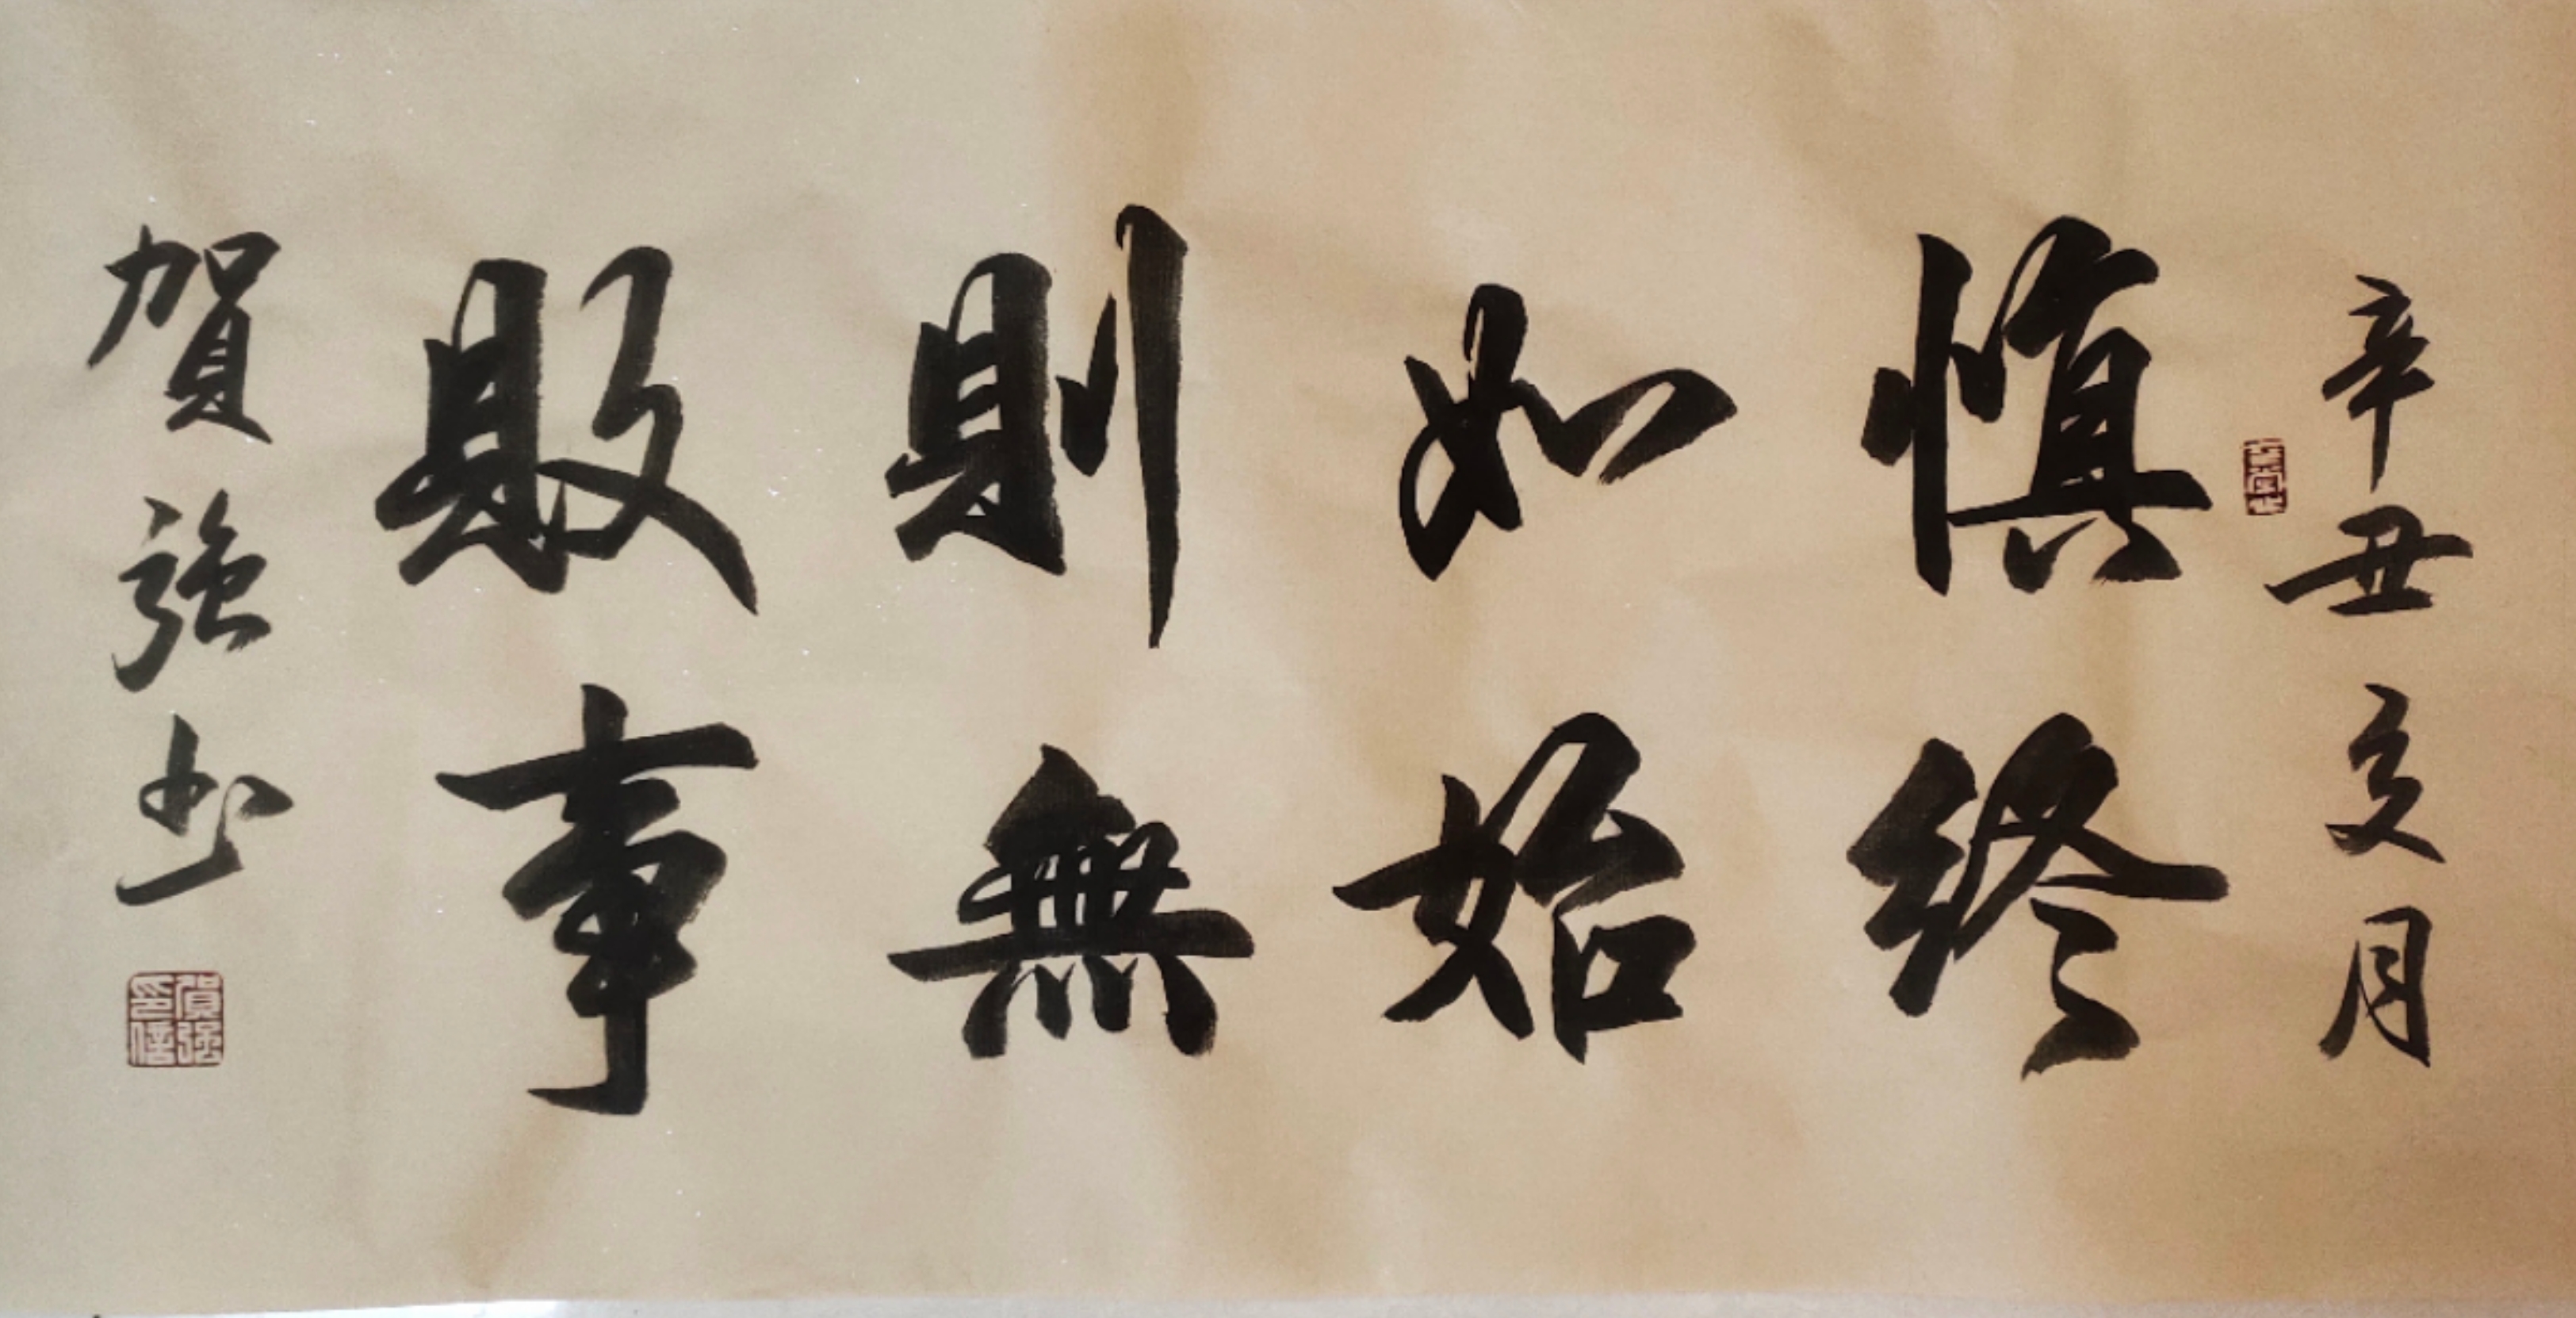 辛丑亥月
慎終
如始
則無
敗事
賀強書
賀強
印信